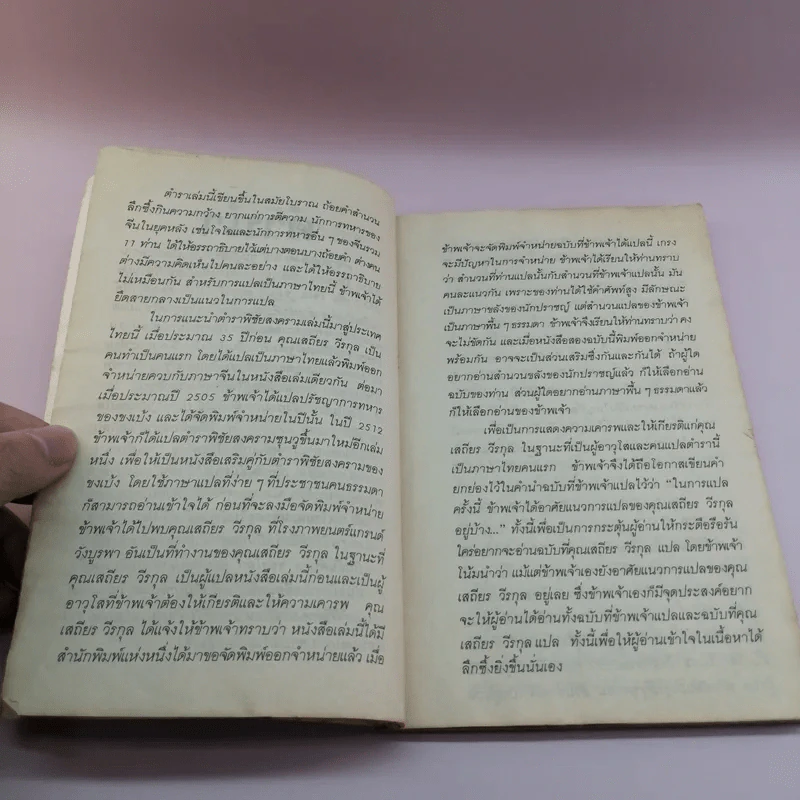 ตำราเล่มนี้เขียนขึ้นในสมัยโบราณ ถ้อยคำสำนวน
ลึกซึ้งกินความกว้าง ยากแก่การตีความ นักการทหารของ
จีนในยุคหลัง เช่นโจโฉและนักการทหารอื่น ๆ ของจีนรวม
11 ท่าน ได้ให้อรรถาธิบายไว้แต่บางตอนบางถ้อยคำ ต่างคน
ต่างมีความคิดเห็นไปคนละอย่าง และได้ให้อรรถาธิบาย
ไม่เหมือนกัน สำหรับการแปลเป็นภาษาไทยนี้ ข้าพเจ้าได้
ยึดสายกลางเป็นแนวในการแปล
ในการแนะนำตำราพิชัยสงครามเล่มนี้มาสู่ประเทศ
ไทยนี้ เมื่อประมาณ 35 ปีก่อน คุณเสถียร วีรกุล เป็น
คนทำเป็นคนแรก โดยได้แปลเป็นภาษาไทยแล้วพิมพ์ออก
จำหน่ายควบกับภาษาจีนในหนังสือเล่มเดียวกัน ต่อมา
เมื่อประมาณปี 2505 ข้าพเจ้าได้แปลปรัชญาการทหาร
ของขงเบ้ง และได้จัดพิมพ์จำหน่ายในปีนั้น ในปี 2512
ข้าพเจ้าก็ได้แปลตำราพิชัยสงครามซุนวูขึ้นมาใหม่อีกเล่ม
หนึ่ง เพื่อให้เป็นหนังสือเสริมคู่กับตำราพิชัยสงครามของ
ขงเบ้ง โดยใช้ภาษาแปลที่ง่าย ๆ ที่ประชาชนคนธรรมดา
ก็สามารถอ่านเข้าใจได้ ก่อนที่จะลงมือจัดพิมพ์จำหน่าย
ข้าพเจ้าได้ไปพบคุณเสถียร วีรกุล ที่โรงภาพยนตร์แกรนด์
วังบูรพา อันเป็นที่ทำงานของคุณเสถียร วีรกุล ในฐานะที่
คุณเสถียร วีรกุล เป็นผู้แปลหนังสือเล่มนี้ก่อนและเป็นผู้
อาวุโสที่ข้าพเจ้าต้องให้เกียรติและให้ความเคารพ คุณ
เสถียร วีรกุล ได้แจ้งให้ข้าพเจ้าทราบว่า หนังสือเล่มนี้ได้มี
สำนักพิมพ์แห่งหนึ่งได้มาขอจัดพิมพ์ออกจำหน่ายแล้ว เมื่อ
ข้าพเจ้าจะจัดพิมพ์จำหน่ายฉบับที่ข้าพเจ้าได้แปลนี้ เกรง
จะมีปัญหาในการจำหน่าย ข้าพเจ้าได้เรียนให้ท่านทราบ
ว่า สำนวนที่ท่านแปลนั้นกับสำนวนที่ข้าพเจ้าแปลนั้น มัน
คนละแนวกัน เพราะของท่านได้ใช้คำศัพท์สูง มีลักษณะ
เป็นภาษาขลังของนักปราชญ์ แต่สำนวนแปลของข้าพเจ้า
เป็นภาษาพื้น ๆ ธรรมดา ข้าพเจ้าจึงเรียนให้ท่านทราบว่า คง
จะไม่ขัดกัน และเมื่อหนังสือสองฉบับนี้พิมพ์ออกจำหน่าย
พร้อมกัน อาจจะเป็นส่วนเสริมซึ่งกันและกันได้ ถ้าผู้ใด
อยากอ่านสำนวนขลังของนักปราชญ์แล้ว ก็ให้เลือกอ่าน
ฉบับของท่าน ส่วนผู้ใดอยากอ่านภาษาพื้น ๆ ธรรมดาแล้ว
ก็ให้เลือกอ่านของข้าพเจ้า
เพื่อเป็นการแสดงความเคารพและให้เกียรติแก่คุณ
เสถียร วีรกุล ในฐานะที่เป็นผู้อาวุโสและคนแปลตำรานี้
เป็นภาษาไทยคนแรก ข้าพเจ้าจึงได้ถือโอกาสเขียนคำ
ยกย่องไว้ในคำนำฉบับที่ข้าพเจ้าแปลไว้ว่า “ในการแปล
ครั้งนี้ ข้าพเจ้าได้อาศัยแนวการแปลของคุณเสถียร วีรกุล
อยู่บ้าง...” ทั้งนี้เพื่อเป็นการกระตุ้นผู้อ่านให้กระตือรือร้น
ใคร่อยากจะอ่านฉบับที่คุณเสถียร วีรกุล แปล โดยข้าพเจ้า
โน้มนำว่า แม้แต่ข้าพเจ้าเองยังอาศัยแนวการแปลของคุณ
เสถียร วีรกุล อยู่เลย ซึ่งข้าพเจ้าเองก็มีจุดประสงค์อยาก
จะให้ผู้อ่านได้อ่านทั้งฉบับที่ข้าพเจ้าแปลและฉบับที่คุณ
เสถียร วีรกุล แปล ทั้งนี้เพื่อให้ผู้อ่านเข้าใจในเนื้อหาได้
ลึกซึ้งยิ่งขึ้นนั่นเอง